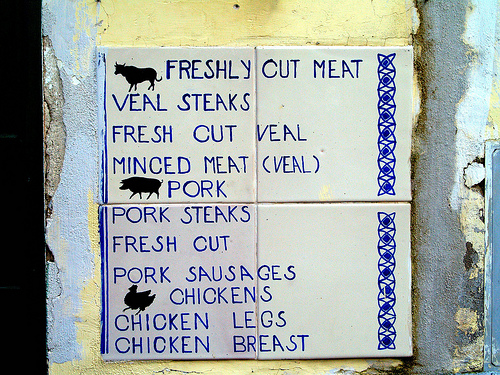 FRESHLY CUT MEAT
VEAL STEAKS
FRESH CUT VEAL
MINCED MEAT (VEAL)
PORK
PORK STEAKS
FRESH CUT
PORK SAUSAGES
CHICKENS
CHICKEN LEGS
CHICKEN BREAST